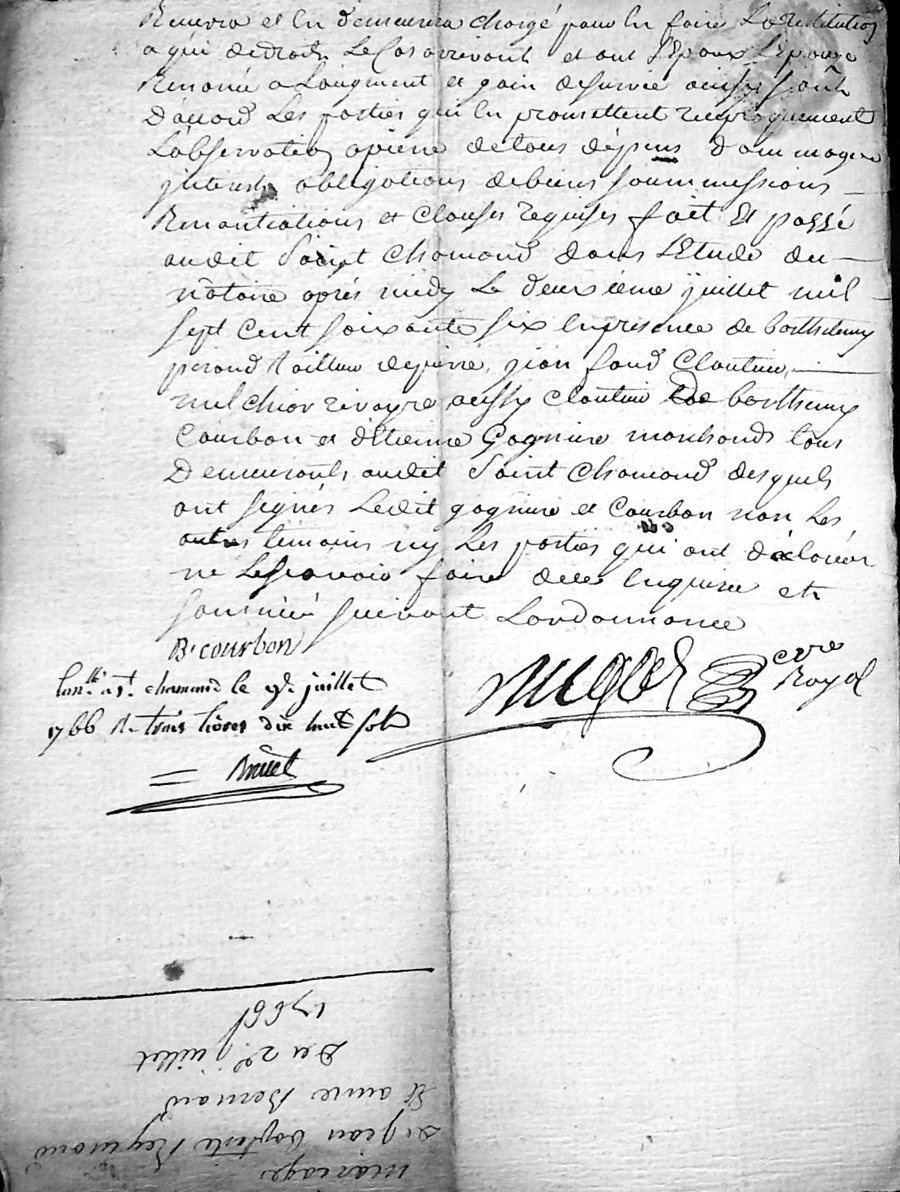 Recevra et en demeurera chargé pour en faire La restitution
a qui dedroits Le Cas arrivant et ont L'Epoux L'Epouse
Renoncé a Laugment et gain desurvie ainsy sont
D'accord Les parties qui en promettent reciproquement
L'observation apeine detous dépens dommages
interests obligations debiens soummissions
Renontiations et clauses requises fait Et passé
audit Saint Chamond dans L'Etude du
notaire aprés midy Le deuxième juillet mil
sept Cent soixante six En presence de barthelemy
peroud tailleur depierre, jean faud Cloutier,
melchior rivoyre aussy cloutier de barthemy
Courbon et d'Etienne Gagniere marchands tous
Demeurants audit Saint Chamond desquels
ont signés Ledit gagniere et Courbon non Les
autres temoins ny Les parties qui ont déclarér
ne Lesçavoir faire dece Enquise et
sommée suivant Lordonnance
B. courbon
nre
Royal
a St. chamond le juillet
1766 R. trois livres dix huit sols
mariage
de jean baptiste Reymond
Et anne Bernard
Du 2e. juillet
1766